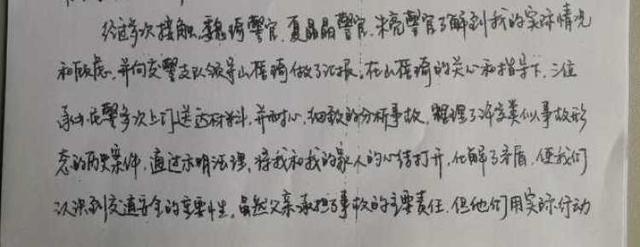 经过多次接触,魏琦警官、夏晶晶警官、朱亮警官了解到我的实际情况
和顾虑,并向交警支队领导山蓓琦做了汇报。在山蓓琦的关心和指导下,三位
承办民警多次上门送达材料,并耐心、细致的分析事故,整理了许多类似事故形
态的历史案件,通过示明法理,将我和我的家人的心结打开,化解了矛盾,使我们
认识到交通安全的重要性。虽然父亲承担了事故的主要责任,但他们用实际行动